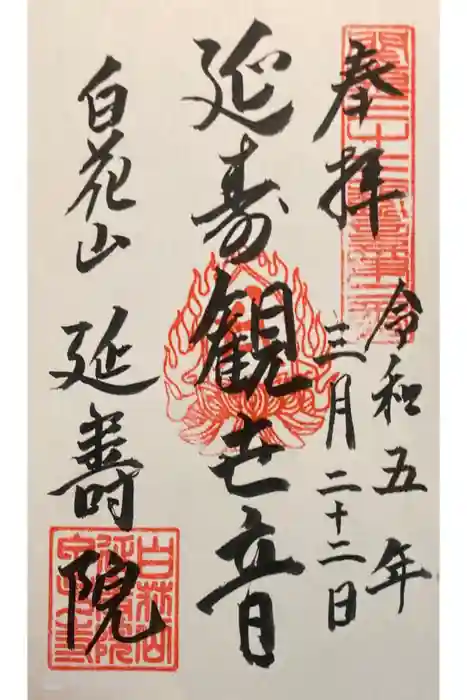 奉拝
令和五年
三月二十二日
延寿観世音
白花山 延壽院